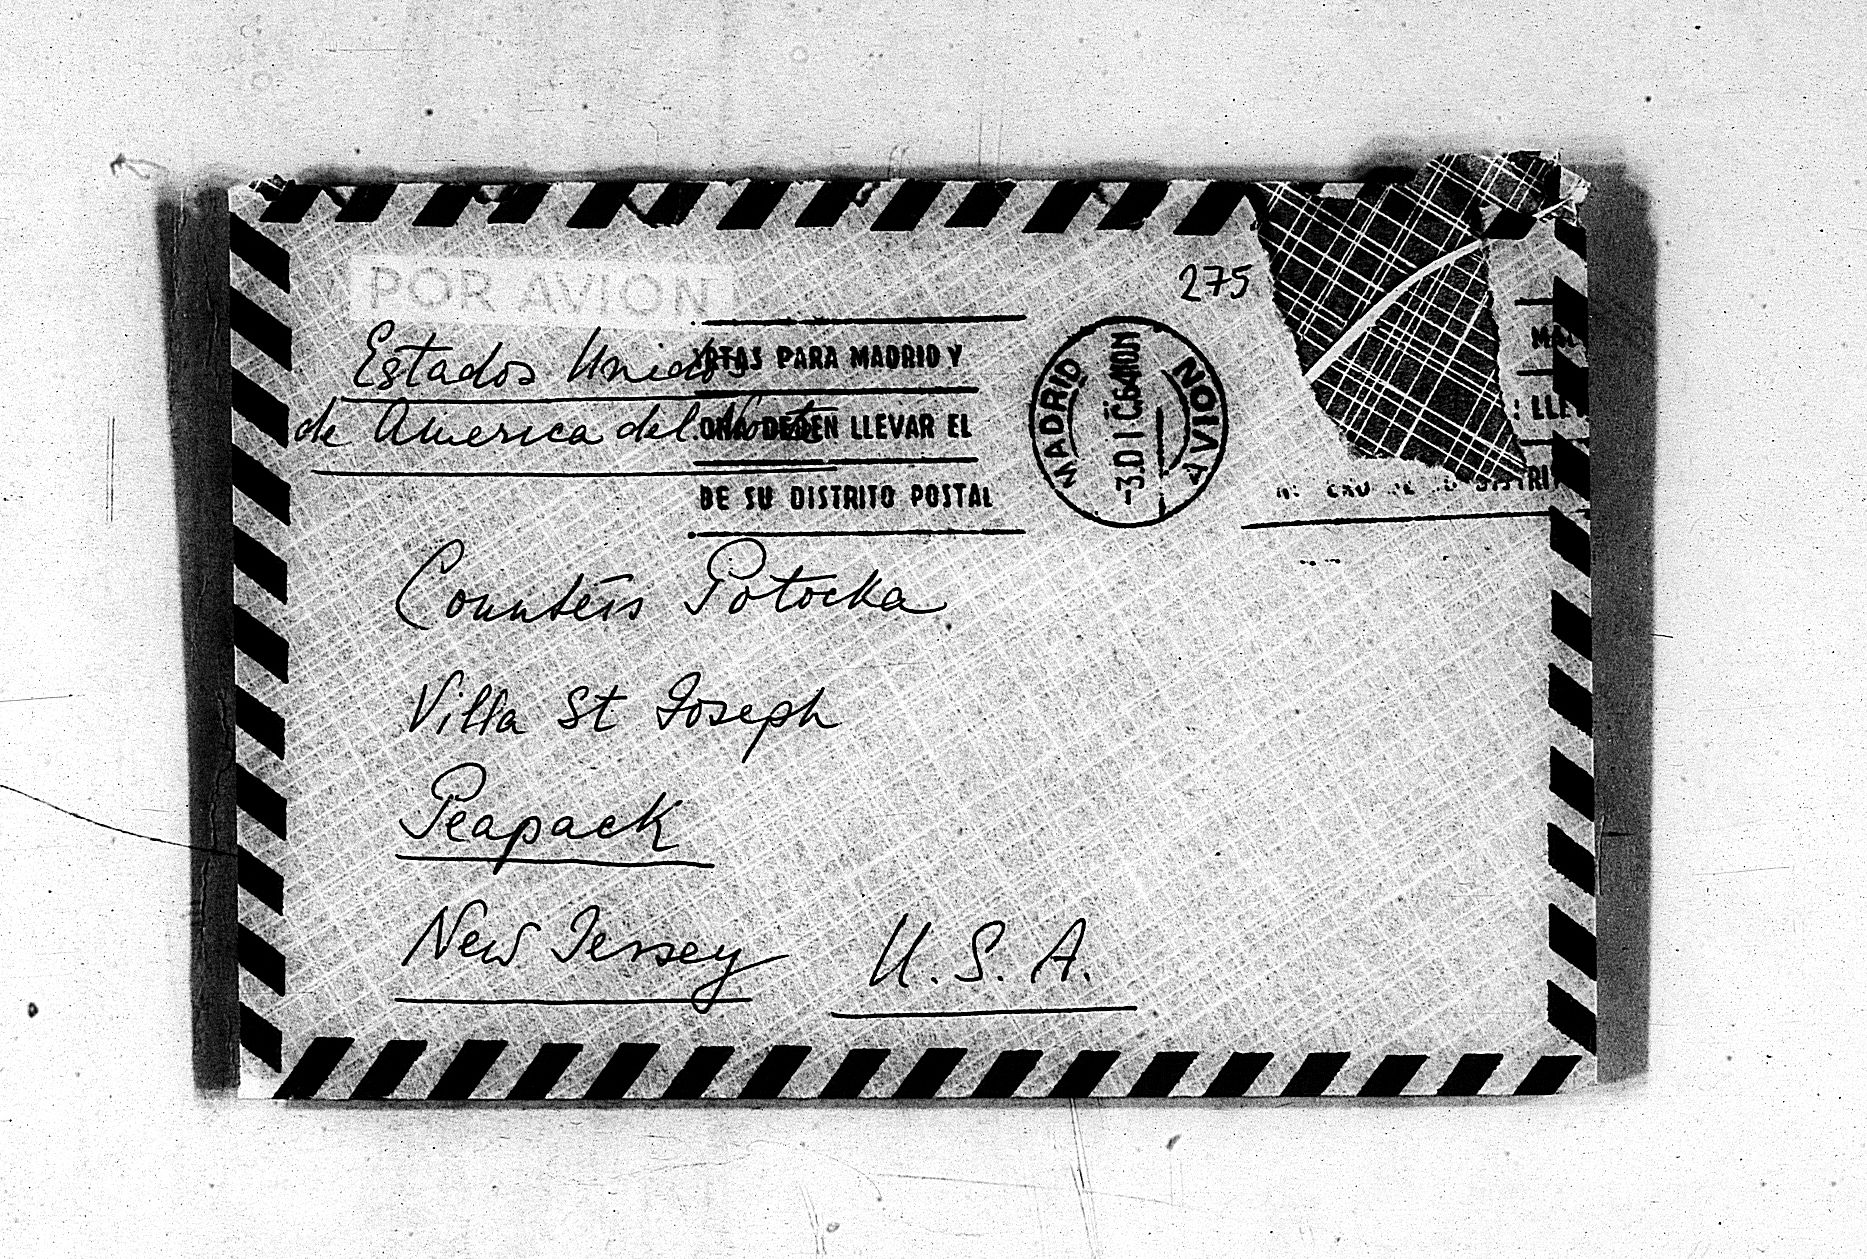 275
POR AVION
Estados Unidos
de America del Norte
RTAS PARA MADRID Y
DEBEN LLEVAR EL
DE SU DISTRITO POSTAL
MADRID
-3.DIC.64 10M
AVION
MA
LLEV
DISTRI
Countess Potocka
Villa St Joseph
Peapack
New Jersey U.S.A.